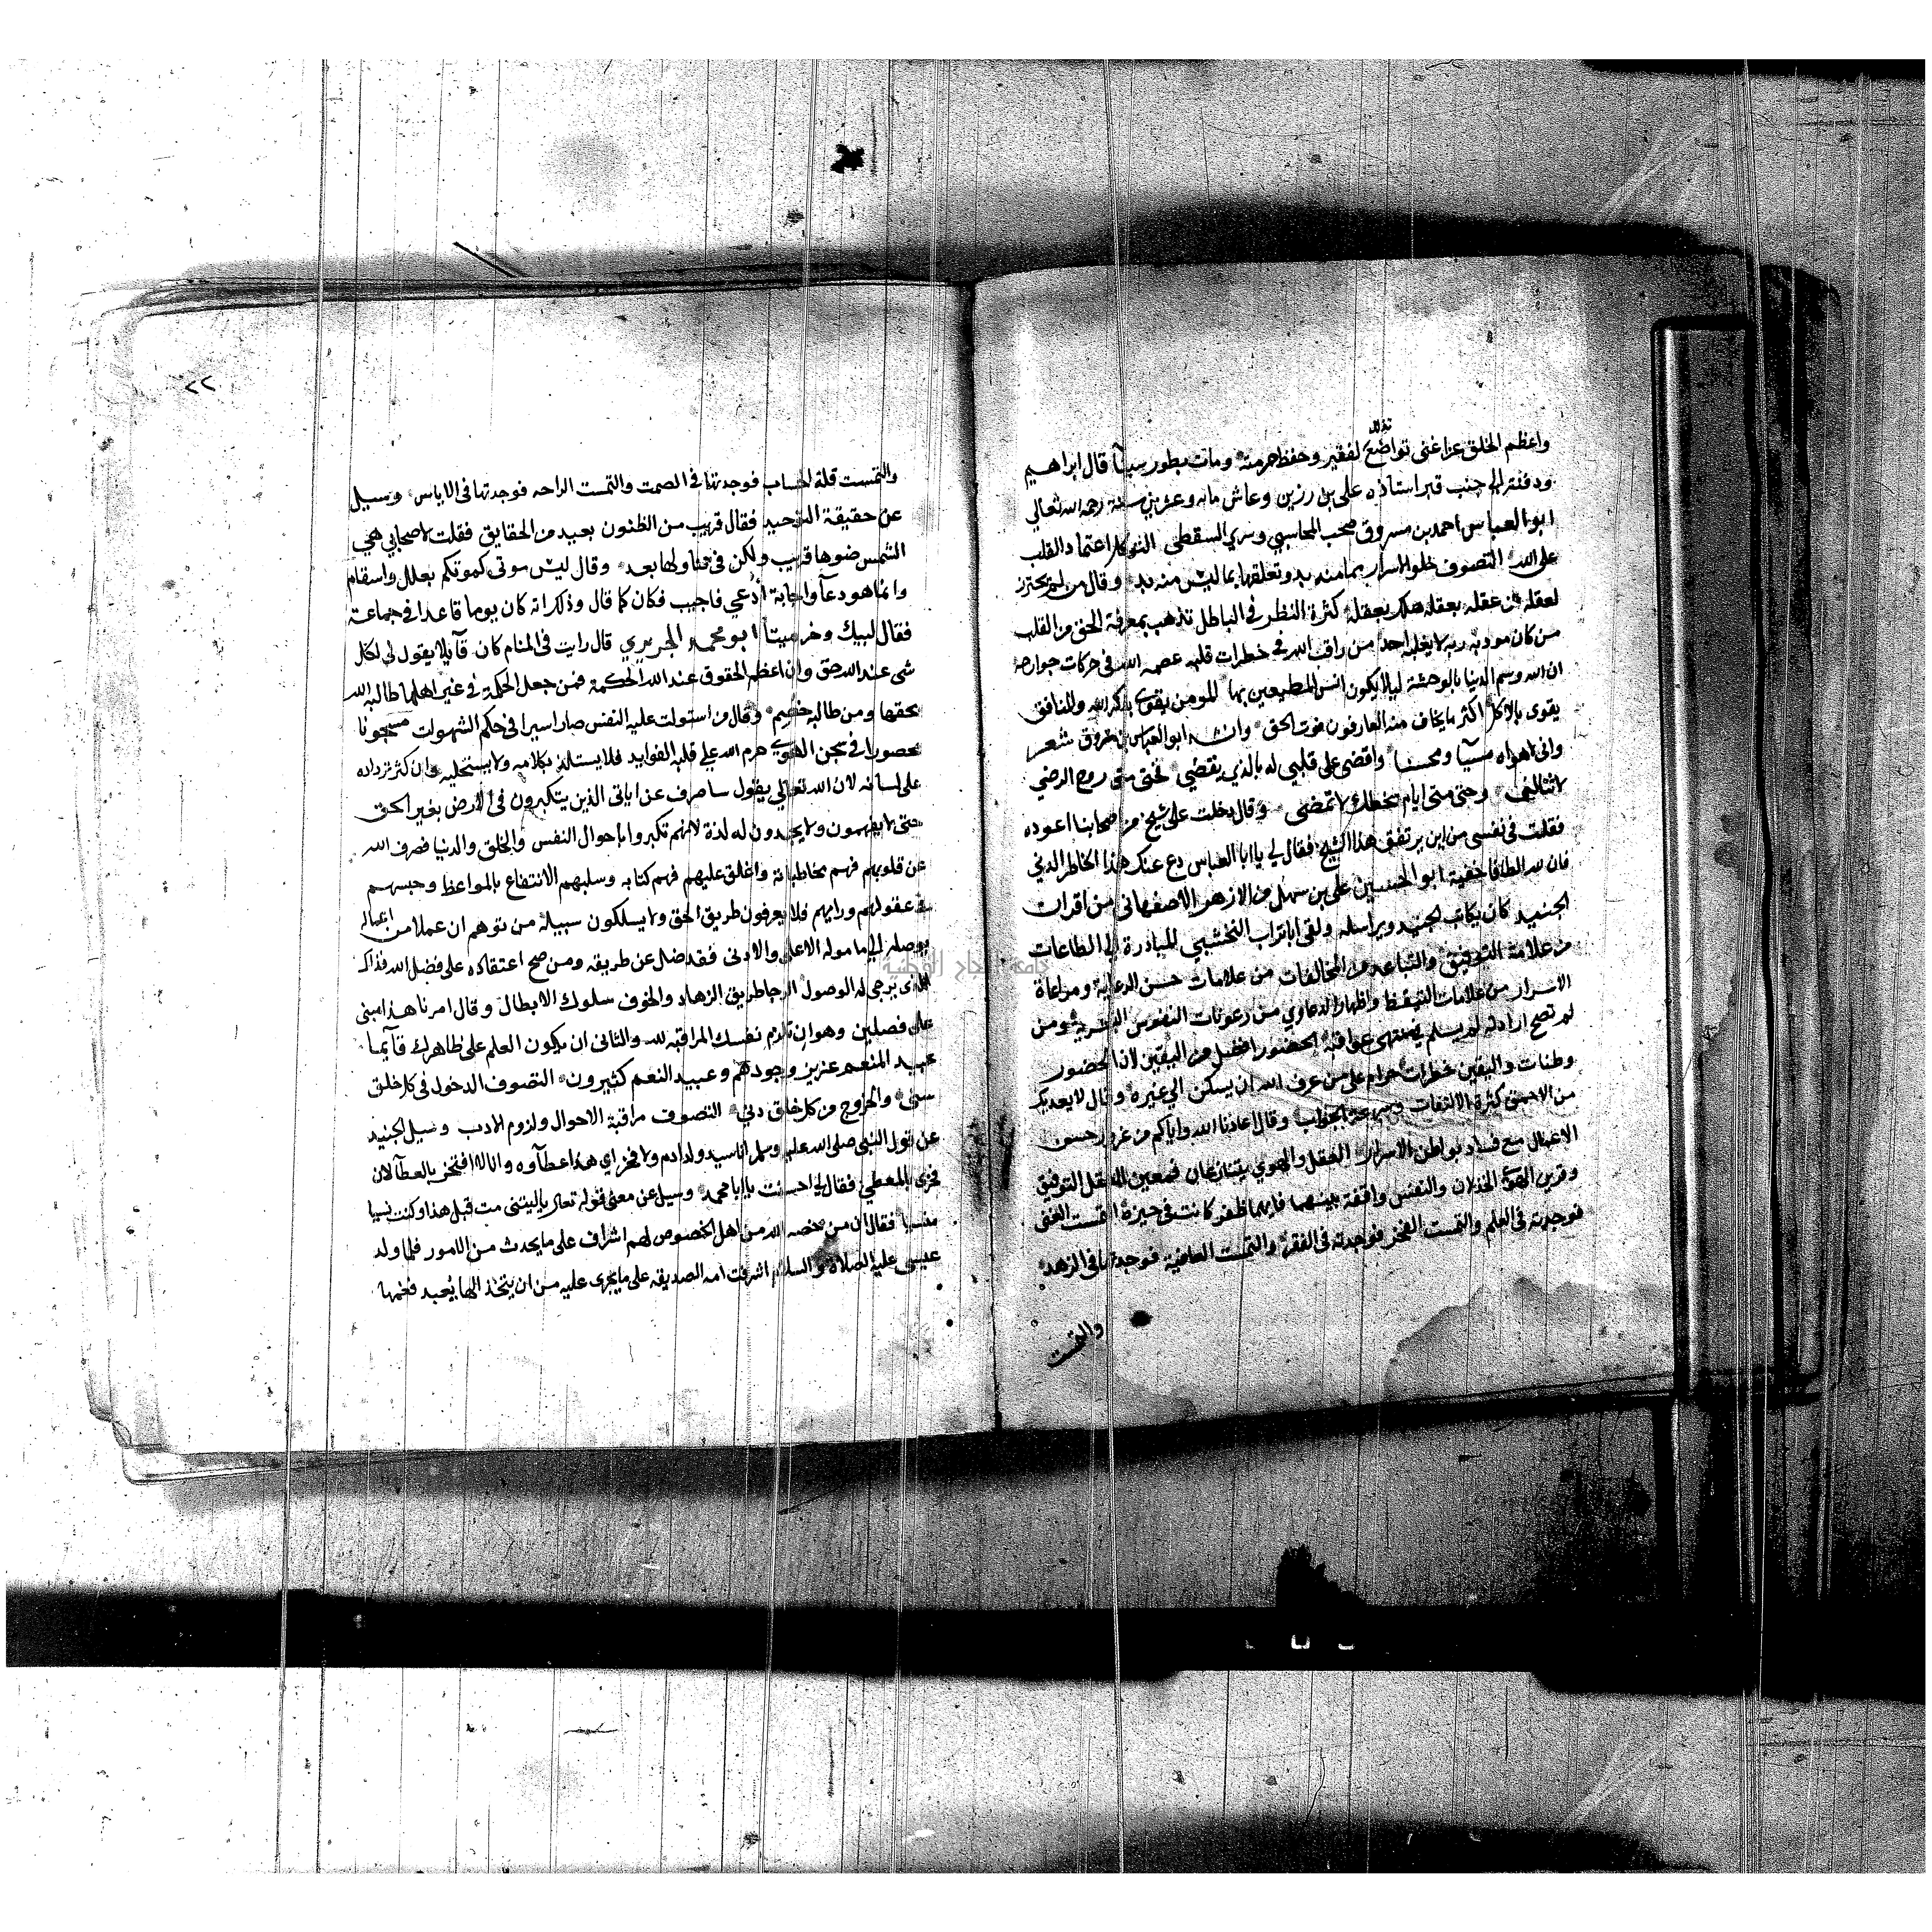 تذلل
واعظم الخلق عزا غنى تواضع لفقير وحفظ حرمته ومات بطور سينا قال ابراهيم
ودفنته الى جنب قبر استاذه على بن رزين وعاش مايه وعشرين سنة رحمه الله تعالى
ابو العباس احمد بن مسروق صحب المحاسبي وسري السقطي التوكل اعتماد القلب
على الله التصوف خلو الاسرار بما منه بد وتعلقها بما ليس منه بد وقال من لم يحترز
لعقله من عقله بعقله هلك بعقله كثرة النظر في الباطل تذهب بمعرفة الحق من القلب
من كان مودبه ربه لا يغلبه احد من راقب الله في خطرات قلبه عصمه الله في حركات جوارحه
ان الله وسم الدنيا بالوحشة ليلا يكون انس المطيعين بها المومن يقوى بذكر الله والمنافق
يقوى بالاكل اكثر ما يخاف منه العارفون فوت الحق وانشد ابو العباس بن مسروق شعر
وانى لاهواه مسيا ومحسنا واقضى على قلبى له بالذى يقضى فحتى متى روح الرضى
لا تنالنى وحتى متى ايام سخطك لا تمضى وقال دخلت على شيخ من اصحابنا اعوده
فقلت فى نفسى من اين يرتفق هذا الشيخ فقال لى يا ابا العباس دع عنك هذا الخاطر الدني
فان لله الطافا خفية ابو الحسين على بن سهل بن الازهر الاصفهانى من اقران
الجنيد كان يكاتب الجنيد ويراسله ولقى ابا تراب النخشبى المبادرة الى الطاعات
من علامة التوفيق والتباعد من المخالفات من علامات حسن الرعاية ومراعاة
الاسرار من علامات التيقظ واظهار الدعاوى من رعونات النفوس البشرية ومن
لم تصح ارادته لم يسلم فى منتهى عواقبه الحضور افضل من اليقين لان الحضور
وطنات واليقين خطرات حرام على من عرف الله ان يسكن الى غيره وقال لا يعديك
من الاحمق كثرة الالتفات وسرعة الجواب وقال اعاذنا الله واياكم من غرور حسن
الاعمال مع فساد بواطن الاسرار العقل والهوى يتنازعان فمعين العقل التوفيق
وقرين الهوى الخذلان والنفس واقفة بينهما فايهما ظفر كانت فى حيزه التمست الغنى
فوجدته فى العلم والتمست الفخر فوجدته فى الفقر والتمست العافية فوجدتها فى الزهد
والتمست
٢٢
والتمست قلة الحساب فوجدتها فى الصمت والتمست الراحه فوجدتها فى الاياس وسيل
عن حقيقة التوحيد فقال قريب من الظنون بعيد من الحقايق فقلت لاصحابى هى
الشمس ضوها قريب ولكن فى تناولها بعد وقال ليس موتى كموتكم بعلل واسقام
وانما هو دعآ واجابة أُدعى فاجيب فكان كما قال وذكر انه كان يوما قاعدا فى جماعة
فقال لبيك وخر ميتا ابو محمد الجريري قال رايت فى المنام كان قآيلا يقول لى لكل
شى عند الله حق وان اعظم الحقوق عند الله الحكمة فمن جعل الحكمة فى غير اهلها طالبه الله
بحقها ومن طالبه خصم وقال من استولت عليه النفس صار اسيرا فى حكم الشهوات مسجونا
محصورا فى سجن الهوى حرم الله على قلبه الفوايد فلا يستلذ بكلامه ولا يستحليه وان كثر ترداده
على لسانه لان الله تعالى يقول ساصرف عن اياتى الذين يتكبرون فى الارض بغير الحق
حتى لا يفهمون ولا يجدون له لذة لانهم تكبروا باحوال النفس والخلق والدنيا فصرف الله
عن قلوبهم فهم مخاطباته واغلق عليهم فهم كتابه وسلبهم الانتفاع بالمواعظ وحبسهم
فى عقولهم ورايهم فلا يعرفون طريق الحق ولا يسلكون سبيله من توهم ان عملا من اعماله
يوصله الى ماموله الاعلى والادنى فقد ضل عن طريقه ومن صح اعتقاده على فضل الله فذاك
الذى يرجى له الوصول الرجا طريق الزهاد والخوف سلوك الابطال وقال امرنا هذا مبنى
على فصلين وهو ان تلزم نفسك المراقبه لله والثانى ان يكون العلم على ظاهرك قآيما
عبيد المنعم عزيز وجودهم وعبيد النعم كثيرون التصوف الدخول فى كل خلق
سنى والخروج من كل خلق دنى التصوف مراقبة الاحوال ولزوم الادب وسيل الجنيد
عن قول النبى صلى الله عليه وسلم انا سيد ولد ادم ولا فخر اي هذا عطآوه وانا لا افتخر بالعطآ لان
فخرى بالمعطى فقال لى احسنت يا ابا محمد وسيل عن معنى قوله تعالى يا ليتنى مت قبل هذا وكنت نسيا
منسيا فقال ان من خصه الله من اهل الخصوص لهم اشراف على ما يحدث من الامور فلما ولد
عيسى عليه الصلاة والسلام اشرفت امه الصديقه على ما يجرى عليه من ان يتخذ الها يُعبد فغمها